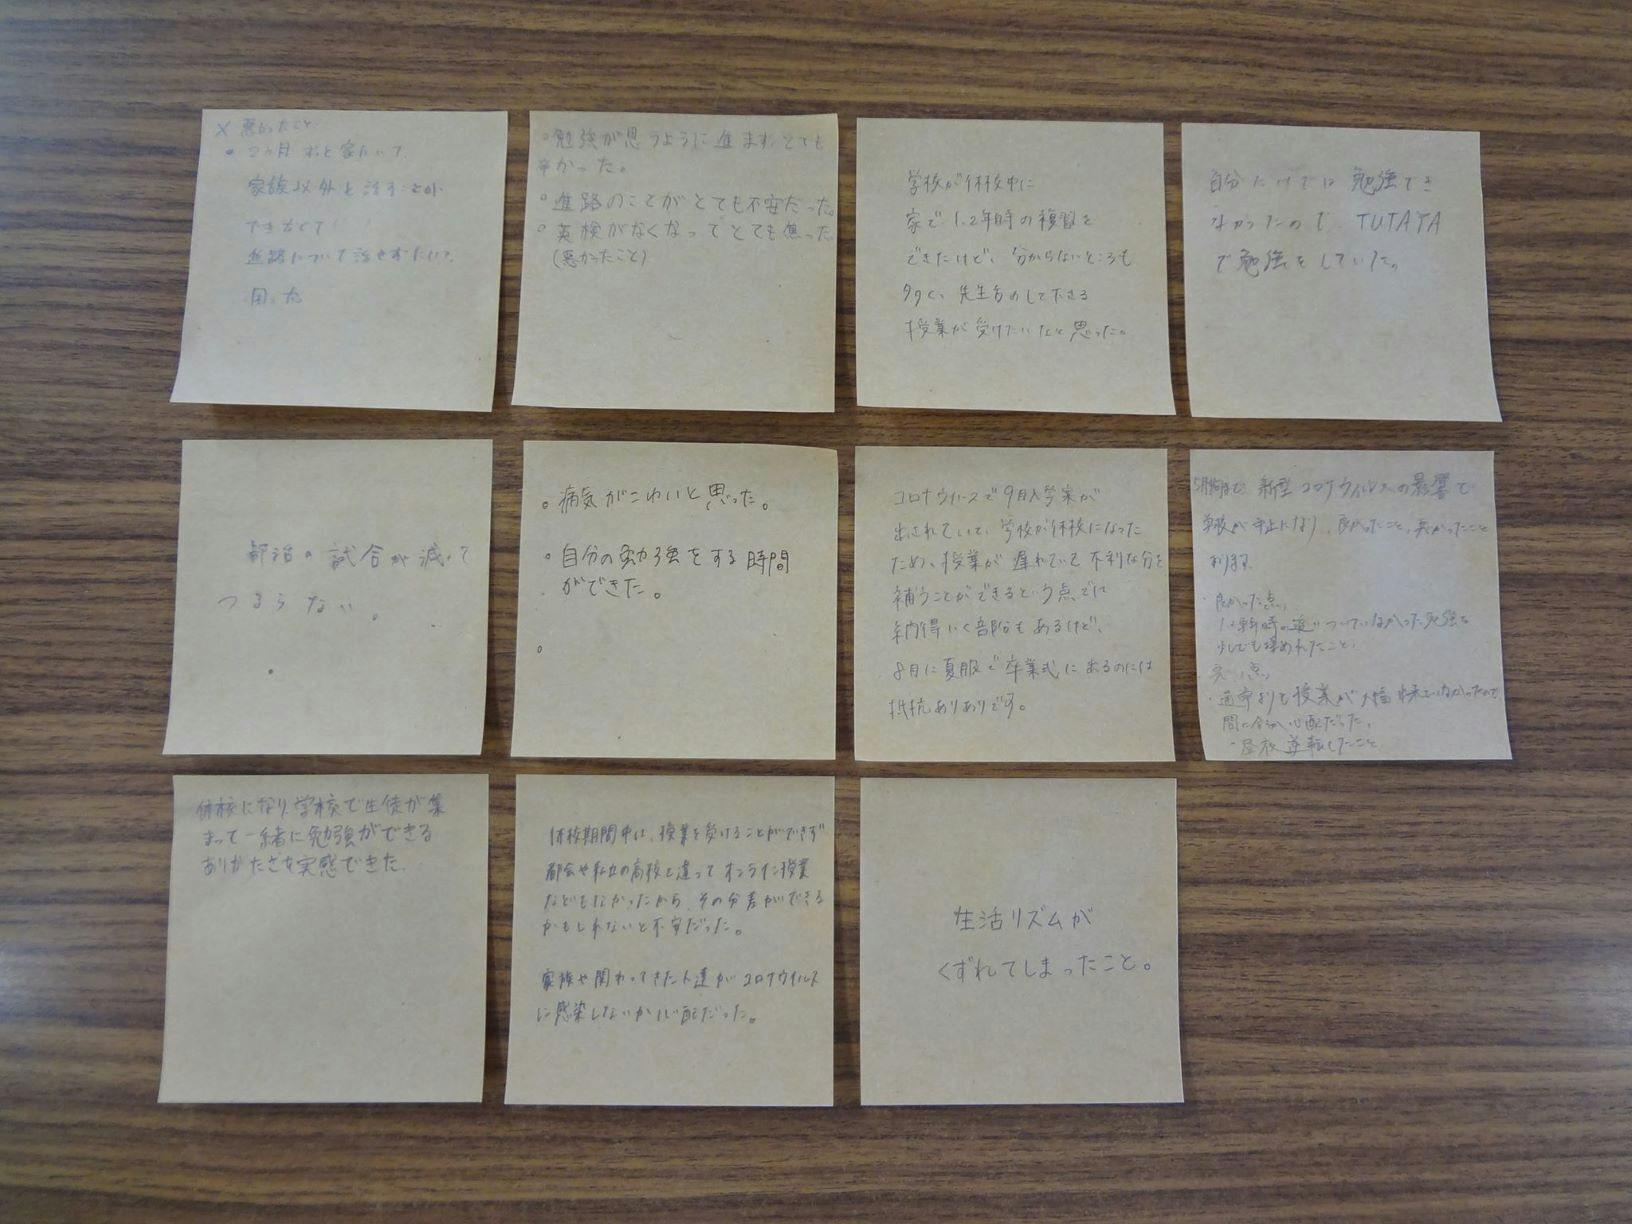 × 悪かったこと
• 2ヵ月 ずっと家にいて、
家族以外と話すことが
できなくて
進路について話せずにいて、
困った
◦ 勉強が思うように進まずとても
辛かった。
◦ 進路のことがとても不安だった。
◦ 英検がなくなってとても焦った
(悪かったこと)
学校が休校中に
家で1.2年時の復習を
できたけど、分からないところも
多く、先生方のして下さる
授業が受けたいなと思った。
自分だけでは勉強でき
なかったので TUTAYA
で勉強をしていた。
部活の試合が減って
つまらない。
◦ 病気がこわいと思った。
◦ 自分の勉強をする時間
ができた。
◦
コロナウイルスで9月入学案が
出されていて、学校が休校になった
ため、授業が遅れていて不利な分を
補うことができるという点では
納得いく部分もあるけど、
8月に夏服で卒業式に出るのには
抵抗ありありです。
新型コロナウイルスの影響で
良かったこと、
あります。
・良かった点
追いついていなかった勉強を
少しでも埋められたこと。
・通常よりも授業が大幅
間に合うか心配だった。
・昼夜逆転したこと
休校になり、学校で生徒が集
まって一緒に勉強ができる
ありがたさを実感できた。
休校期間中は、授業を受けることができず
都会や私立の高校と違ってオンライン授業
などもなかったから、その分差ができる
かもしれないと不安だった。
家族や関わってきた人達がコロナウイルス
に感染しないか心配だった。
生活リズムが
くずれてしまったこと。